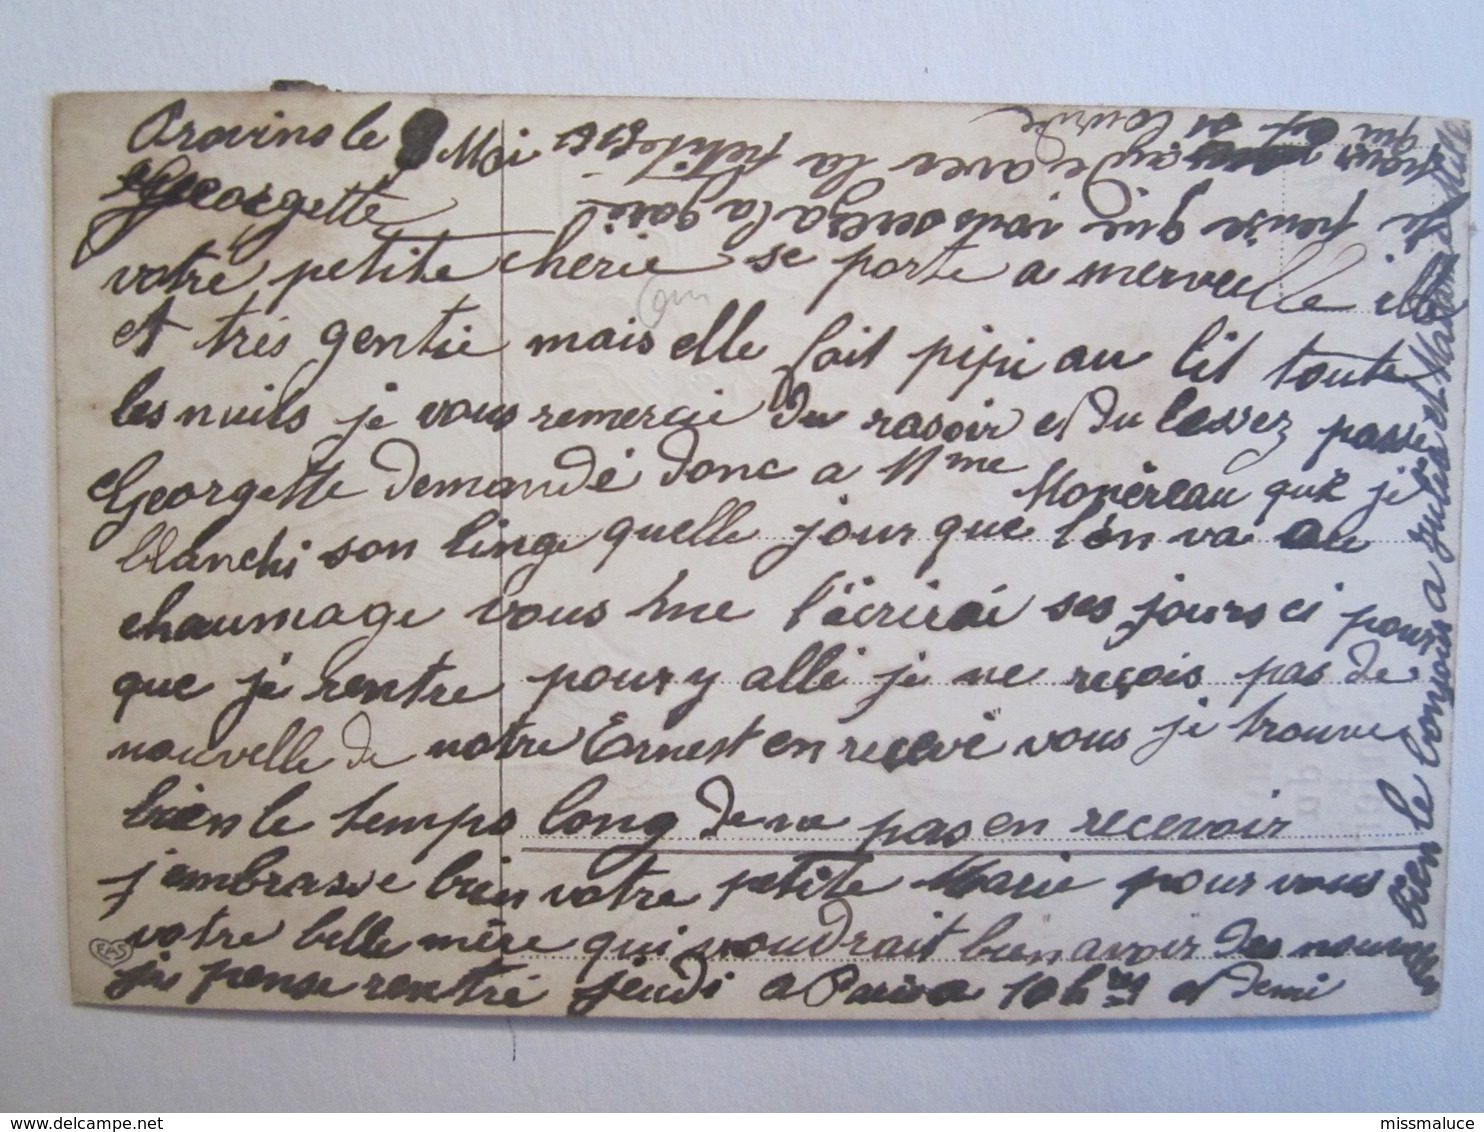 Provins le 9 Mai 1915
Georgette
votre petite cherie se porte a merveille ille
et trés gentie mais elle fait pipi au lit toute
les nuits je vous remercie du rasoir et du lessez passé
Georgette demandé donc a Mme Monereau quil je
blanchi son linge quelle jour que l'on va au
chaumage vous me l'écrirai ses jours ci pour
que je rentre pour y allé je ne reçois pas de
nouvelle de notre Ernest en recevé vous je trouve
bien le temps long de ne pas en recevoir
j'embrasse bien votre petite Marie pour vous
votre belle mère qui voudrait bien avoir des nouvelles
je pense rentré jeudi a Paris a 10 hres et demi
je pense que vous serez a la gare
pour aydé avec la petite
qui est si lourde
bien le bonjour a Julia et Madame
FAS
missmaluce